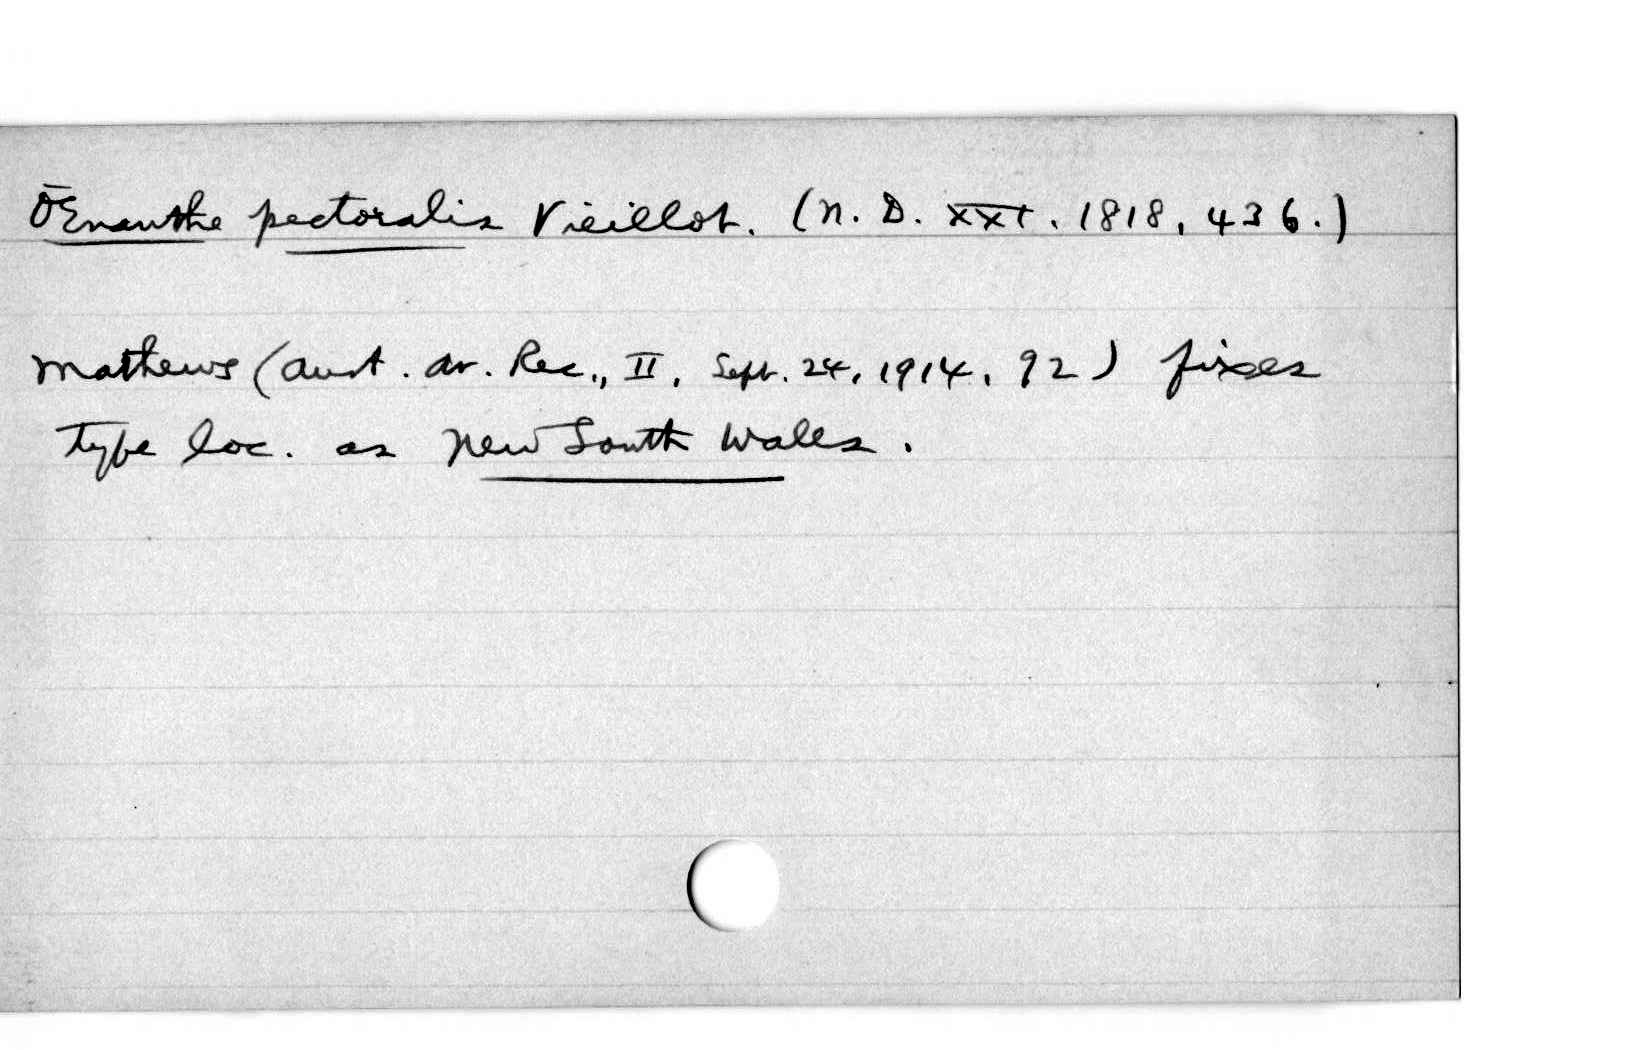 Œnanthe pectoralis Vieillot. (N. D. XXI. 1818, 436.)
Mathews (Aust. Av. Rec., II, Sept. 24, 1914, 92) fixes
type loc. as New South Wales.